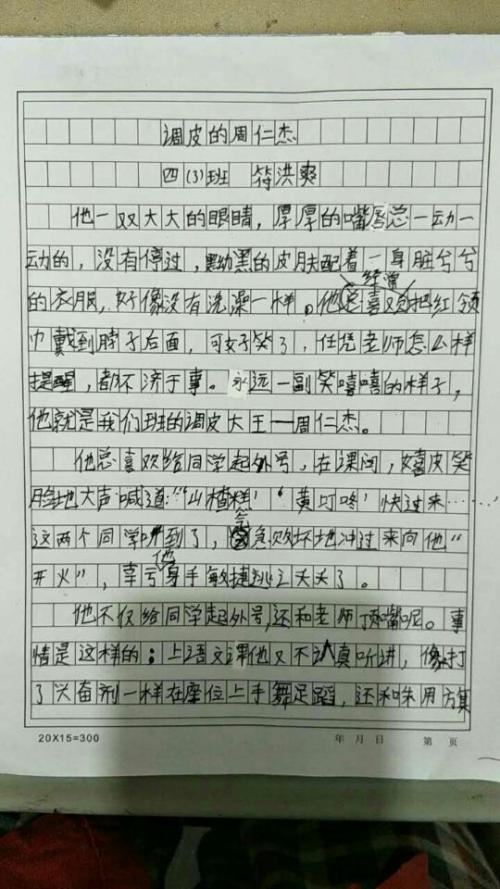 调皮的周仁杰
四(3)班 符洪爽
他一双大大的眼睛，厚厚的嘴唇总一动一
动的，没有停过，黝黑的皮肤配着一身脏兮兮
的衣服，好像没有洗澡一样。他经常把红领
巾戴到脖子后面，可好笑了，任凭老师怎么样
提醒，都不济于事。永远一副笑嘻嘻的样子，
他就是我们班的调皮大王——周仁杰。
他总喜欢给同学起外号，在课间，嬉皮笑
脸地大声喊道：“‘山楂糕’‘黄叮咚’快过来……
这两个同学听到了，气急败坏地冲过来向他“
开火”，幸亏他身手敏捷逃之夭夭了。
他不仅给同学起外号，还和老师顶嘴呢。事
情是这样的：上语文课他又不认真听讲，像打
了兴奋剂一样在座位上手舞足蹈，还和咮用方集
20X15=300
年 月 日 第 页